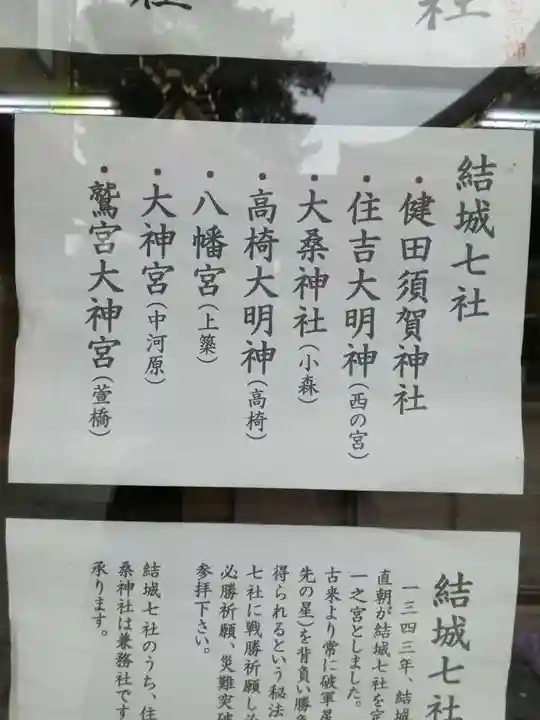 社 社
結城七社
・健田須賀神社
・住吉大明神(西の宮)
・大桑神社(小森)
・高椅大明神(高椅)
・八幡宮(上簗)
・大神宮(中河原)
・鷲宮大神宮(萱橋)
結城七社
一三四三年、結城
直朝が結城七社を定
一之宮としました。
古来より常に破軍星
先の星)を背負い勝負
得られるという秘法
七社に戦勝祈願し
必勝祈願、災難突破
参拝下さい。
結城七社のうち、住
桑神社は兼務社です
承ります。